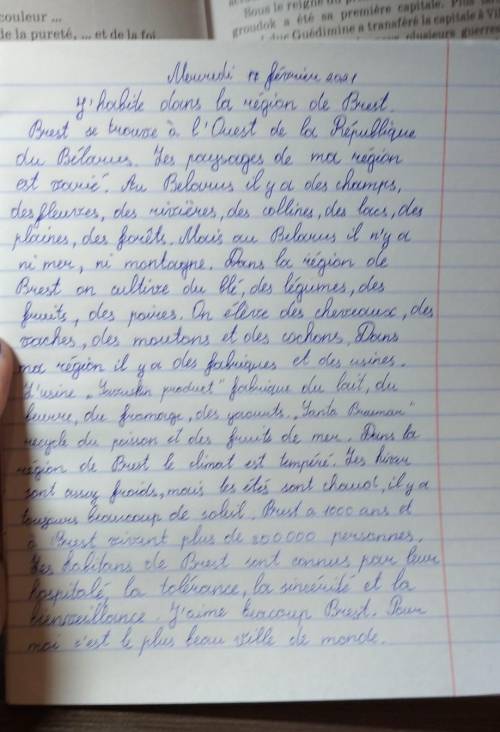 couleur ...
de la pureté, ... et de la foi
Sous le reigne du
groudok a été sa première capitale. Plus
duc Guédimine a transféré la capitale à
plusieurs guerres
Mercredi 17 février 2021
J'habite dans la région de Brest.
Brest se trouve à l'Ouest de la République
du Bélarus. Les paysages de ma région
est varié. Au Belarus il y a des champs,
des fleuves, des rivières, des collines, des lacs, des
plaines, des forêts. Mais au Belarus il n'y a
ni mer, ni montagne. Dans la région de
Brest on cultive du blé, des légumes, des
fruits, des poires. On élève des cheveaux, des
vaches, des moutons et des cochons. Dans
ma région il y a des fabriques et des usines.
L'usine „Savushkin product" fabrique du lait, du
beurre, du fromage, des yaourts. „Santa Bremor"
recycle du poisson et des fruits de mer. Dans la
région de Brest le climat est tempéré. Les hiver
sont assez froids, mais les étés sont chaud, il y a
toujours beaucoup de soleil. Brest a 1000 ans et
à Brest vivant plus de 200000 personnes.
Les habitans de Brest sont connus par leur
hospitalé, la tolérance, la sincérité et la
bienveillance. J'aime beacoup Brest. Pour
moi c'est le plus beau ville de monde.